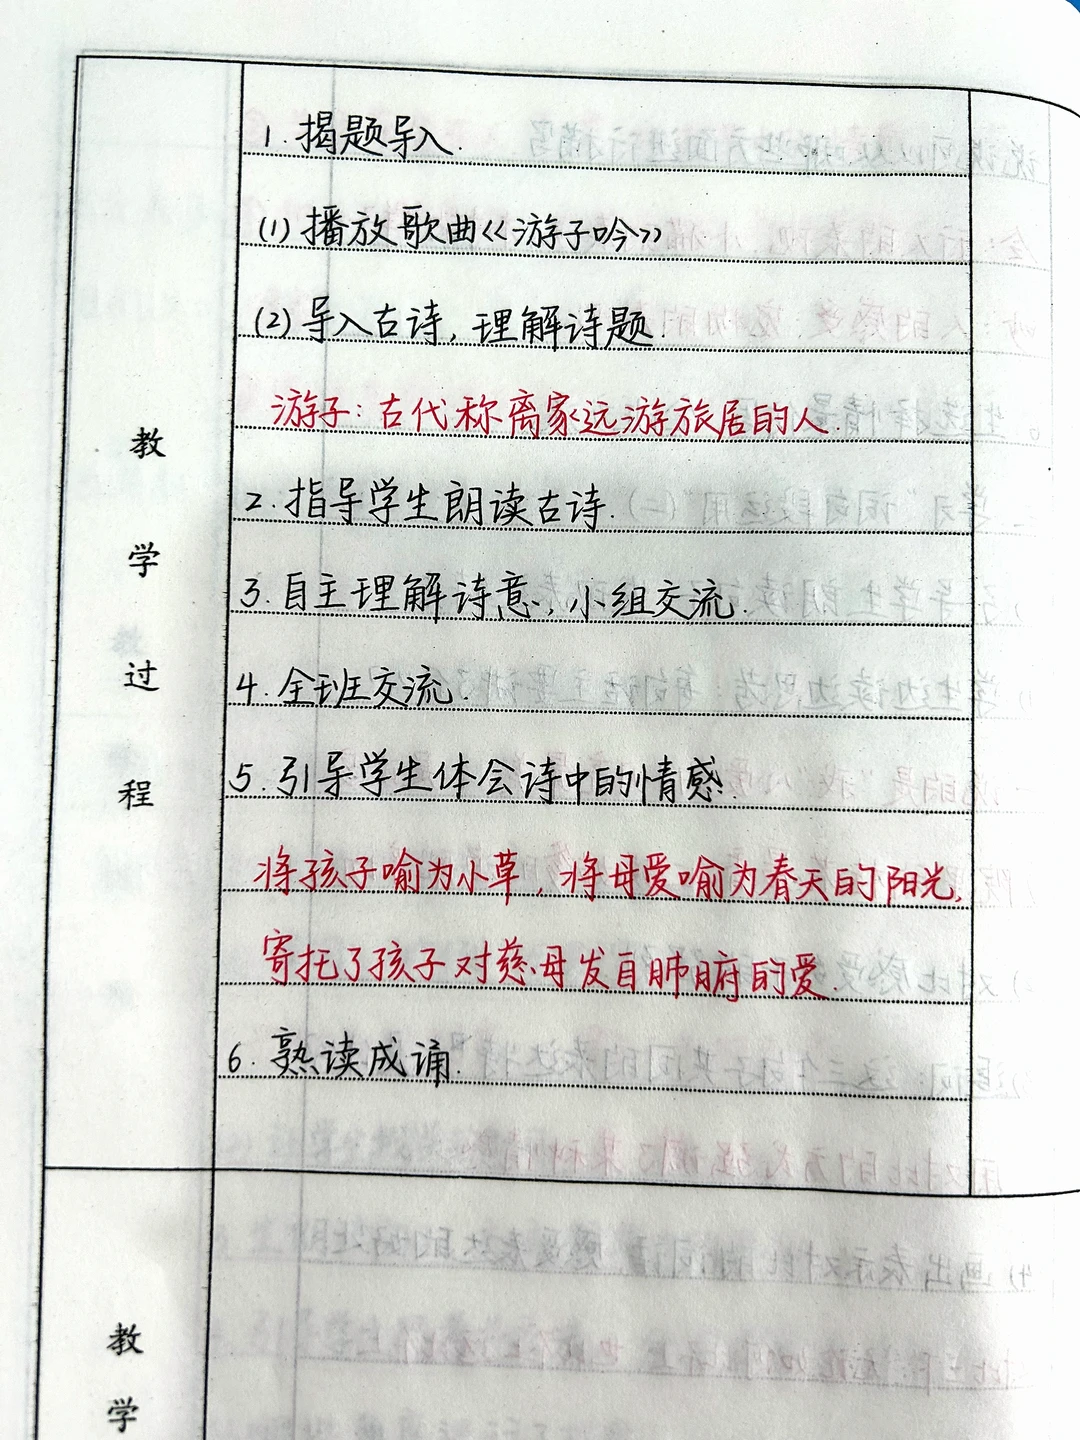 教学过程
1. 揭题导入.
(1) 播放歌曲《游子吟》
(2) 导入古诗, 理解诗题.
游子: 古代称离家远游旅居的人.
2. 指导学生朗读古诗.
3. 自主理解诗意, 小组交流.
4. 全班交流.
5. 引导学生体会诗中的情感.
将孩子喻为小草, 将母爱喻为春天的阳光,
寄托了孩子对慈母发自肺腑的爱.
6. 熟读成诵.
教学